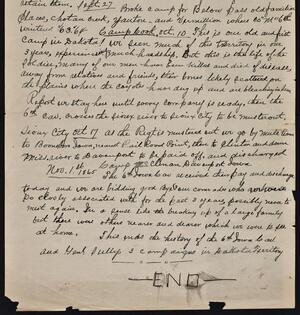 retain them. Sept 27 Broke camp for Below Pass old familiar
Places, Choteau creek, Yancton, and Vermillion where Co. M & 6th
wintered 63 & 64 Camp Cook, Oct. 10. This is one old and first
Camp in Dakota. We seen much of this Territory in our
3 years experience and hardship. But this is the life of the
Soldier, many of our men have been killed and died of disease,
away from relations and friends, their bones likely scattered on
the plains where the coyotes have dug up and are bleaching in
Report we stay here until every company is ready, then the
6th Cav. crosses the sioux river to Sioux City to be mustered out,
Sioux City Oct 17 as the Reg't is mustered out we go by
to Boonsboro Iowa, nearest Rail Road Point, then to Clinton and down
Miss. river to Davenport to be paid off and discharged
Nov. 1. 1865 Camp McClellan Davenport Iowa.
The 6th Iowa Cav received their pay and discharge
today and we are bidding good Bye to our comrades who we were
so closely associated with for the past 3 years possibly never to
met again. In a sense like the breaking up of a large family
but there were others nearer and dearer which we were to see
at home. This ends the history of the 6th Iowa Cav
and Genl Sully's 3 campaigns in Dakota Territory
END